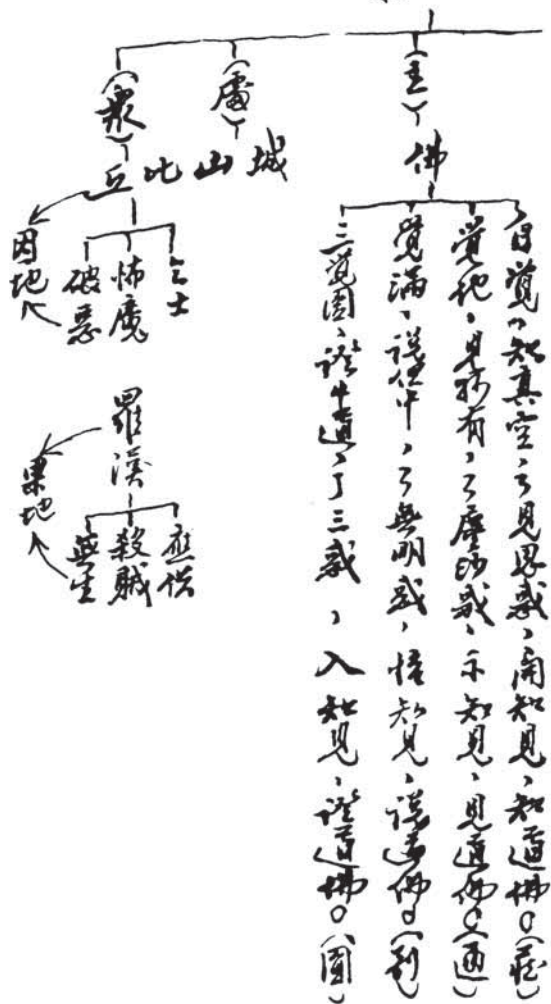 (主)佛
自覺、知真空、了見思惑、開知見、知道佛。(藏)
覺他、見妙有、了塵沙惑、示知見、見道佛。(通)
覺滿、證但中、了無明惑、悟知見、證道佛。(別)
三覺圓、證中道、了三惑、入知見、證道佛。(圓)
(處)城山
(眾)比丘
乞士
怖魔
破惡
因地
羅漢
應供
殺賊
無生
果地